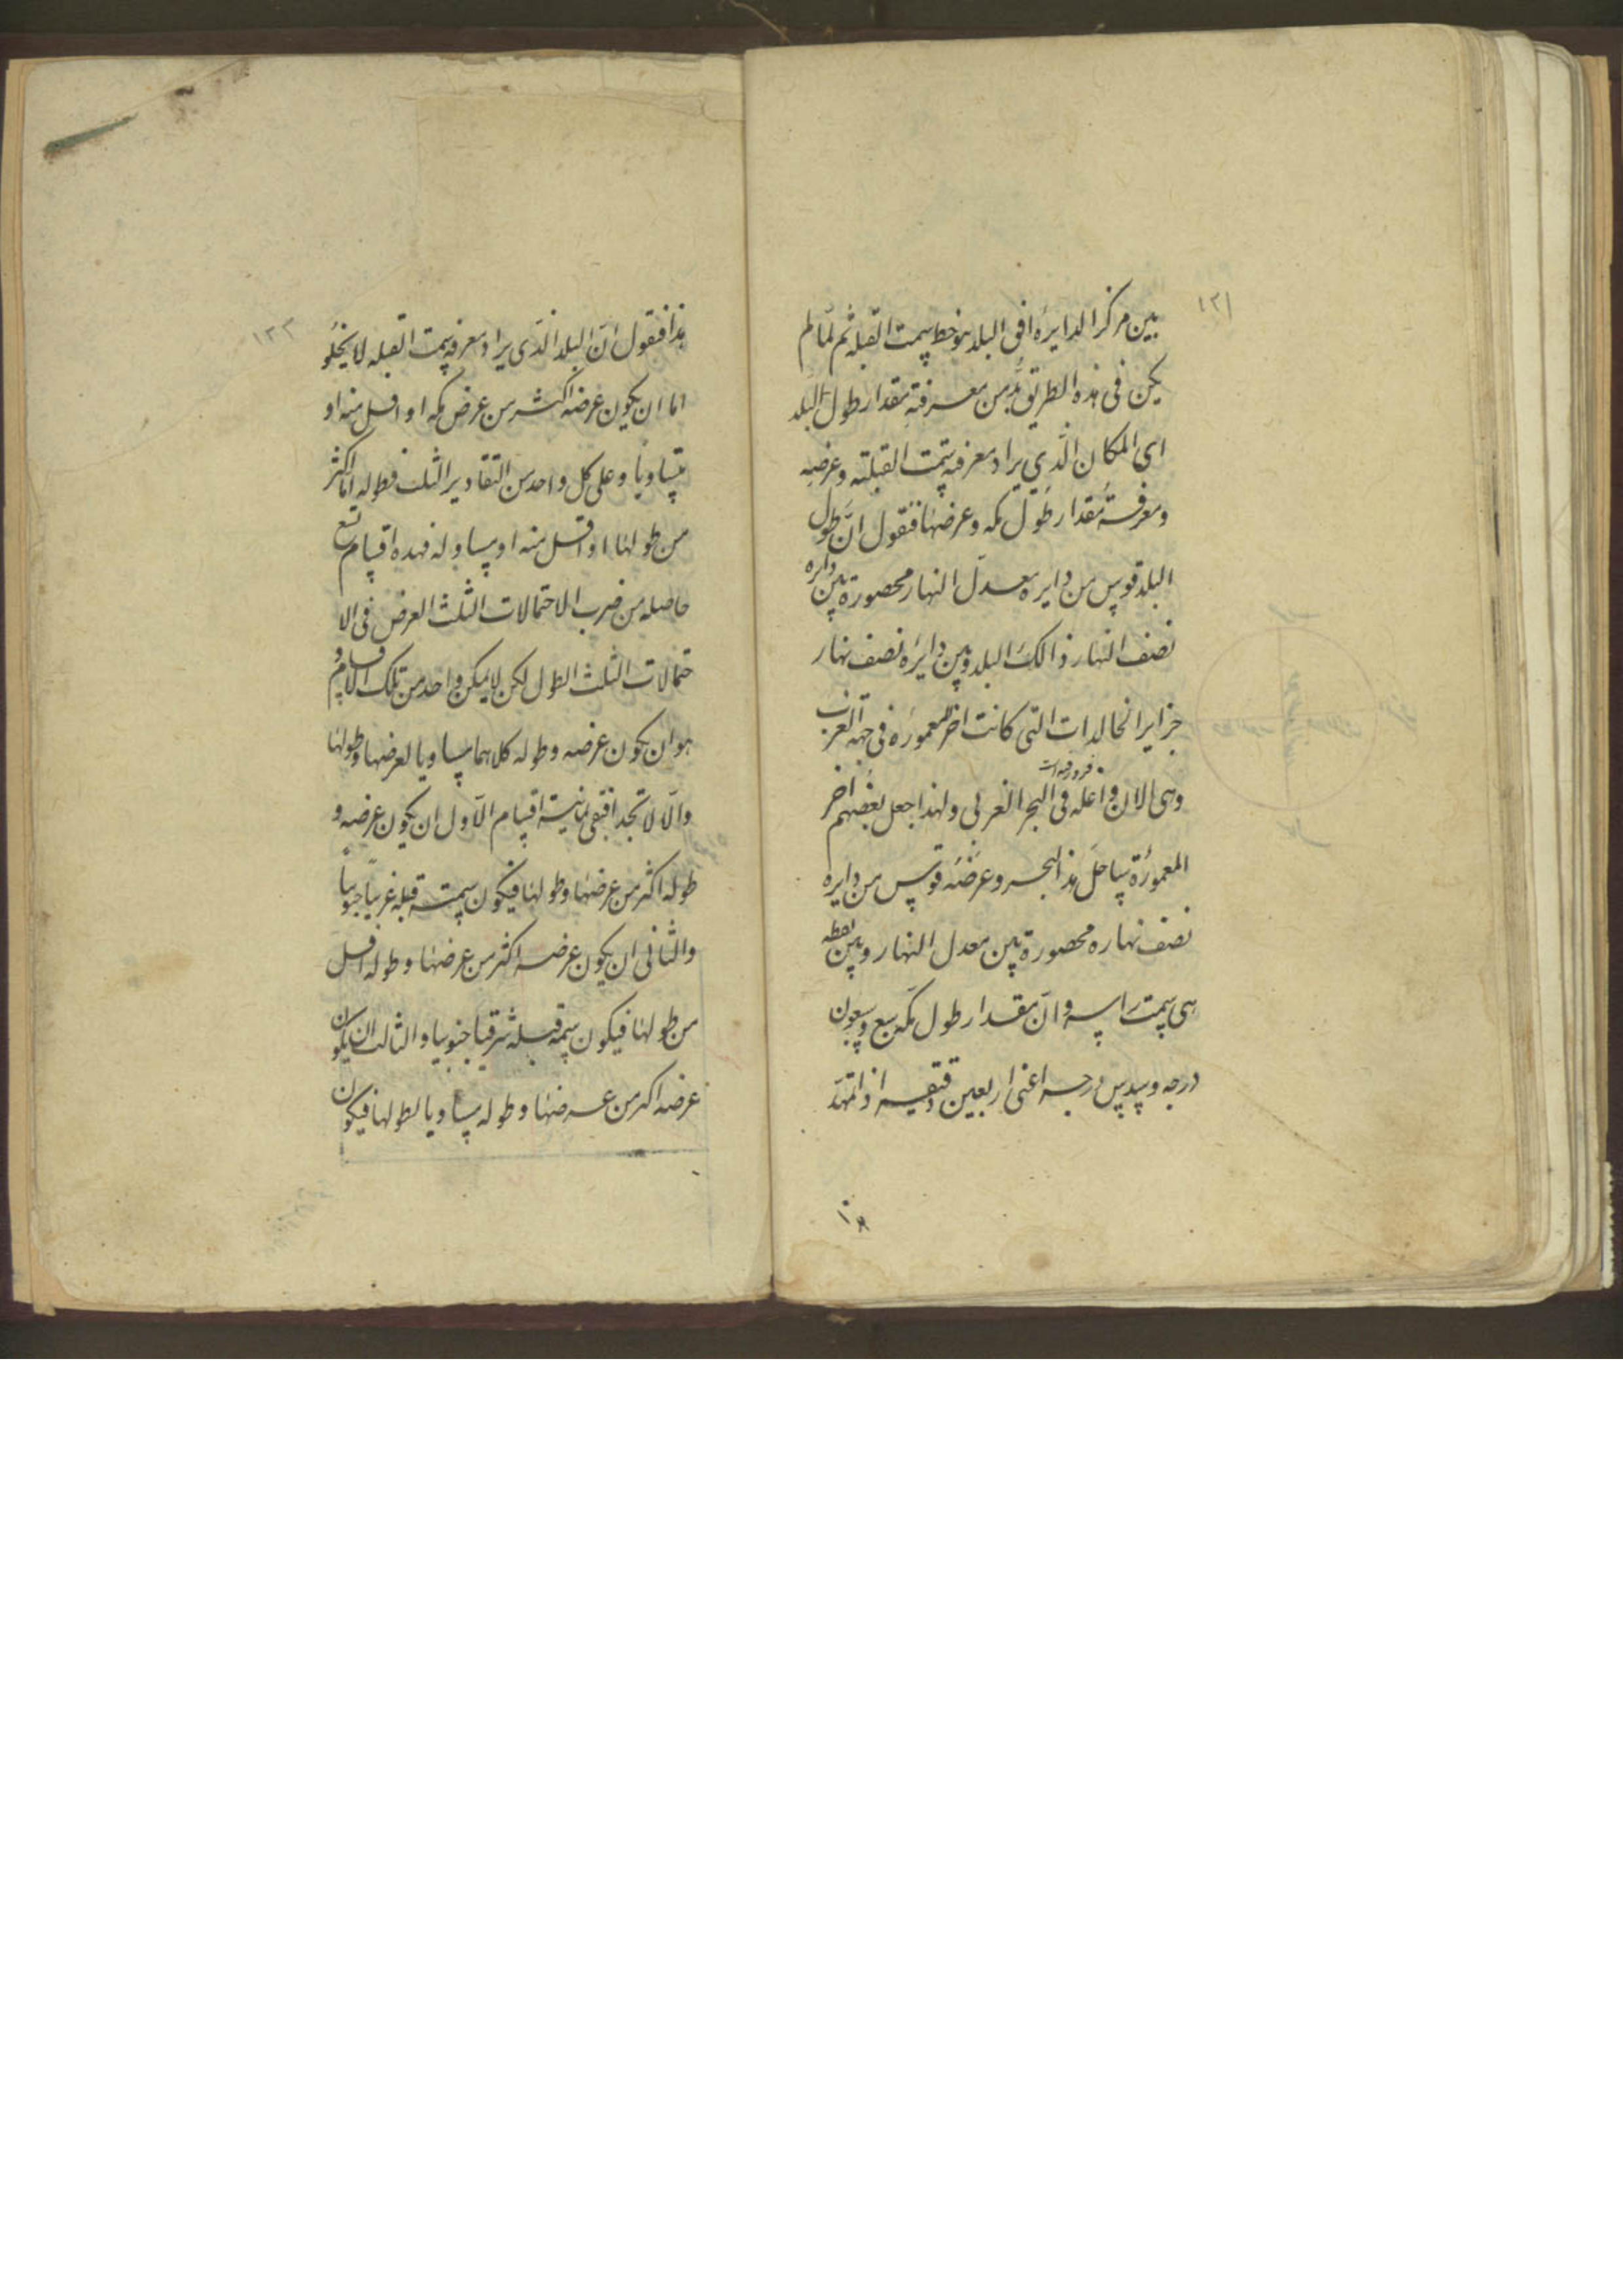 ١٢١
بين مركز الدايره افق البلد هو خط سمت القبله ثم لما لم
يكن فى هذه الطريق بد من معرفة مقدار طول البلد
اى المكان الذي يراد معرفه سمت القبلته وعرضه
ومعرفة مقدار طول مكه وعرضها فنقول ان طول
البلد قوس من دايره معدل النهار محصورة بين دايره
نصف النهار ذالك البلد وبين دايره نصف نهار
جزاير الخالدات التى كانت اخر المعموره فى جهة الغرب
وهى الان فى البحر الغربى ولهذا جعل بعضهم اخر
المعمورة ساحل هذ البحر وعرضه قوس من دايره
نصف نهاره محصورة بين معدل النهار وبين نقطه
هى سمت راسه وان مقدار طول مكه سبع وسبعون
درجه وسدس درجه اعنى اربعين دقيقه اذا تمهد
١٢٢
هذا فنقول ان البلد الذى يراد معرفه سمت القبله لا يخلو
اما ان يكون عرضه اكثر من عرض مكه او اقل منه او
متساويا وعلى كل واحد من التقادير الثلث فطوله اما اكثر
من طولها او اقل منه او مساو له فهده اقسام تسع
حاصله من ضرب الاحتمالات الثلث العرض فى الا
حتمالات الثلث الطول لكن لا يمكن واحد من تلك الاقسام و
هو ان يكون عرضه وطوله كلاهما مساويا لعرضها وطولها
والا لاتحد افبقى ثمانية اقسام الاول ان يكون عرضه و
طوله اكثر من عرضها وطولها فيكون سمت قبله غربيا جنوبيا
والثانى ان يكون عرضه اكثر من عرضها وطوله اقل
من طولها فيكون سمة قبله شرقيا جنوبيا والثالث ان يكون
عرضه اكثر من عرضها وطوله مساويا لطولها فيكون